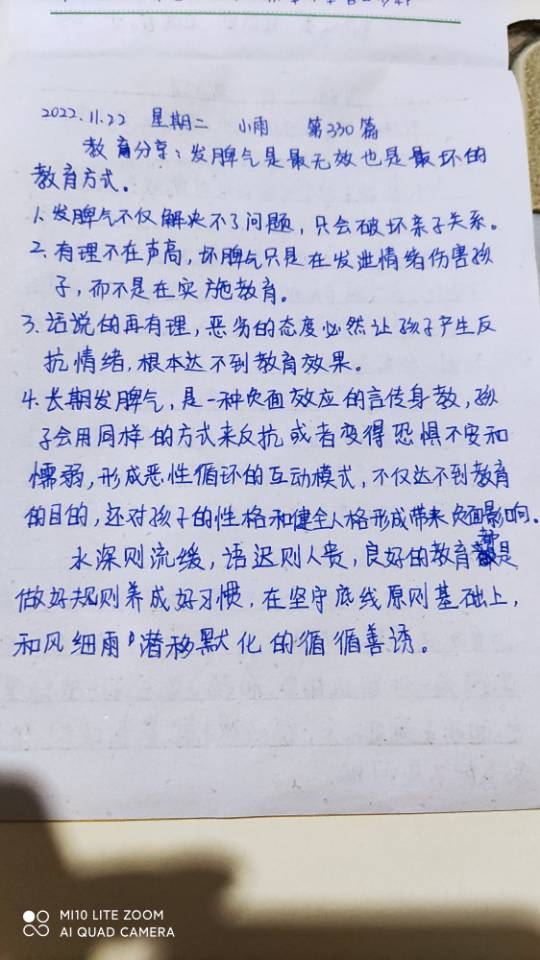 2022.11.22 星期二 小雨 第330篇
教育分享：发脾气是最无效也是最坏的
教育方式。
1.发脾气不仅解决不了问题，只会破坏亲子关系。
2.有理不在声高，坏脾气只是在发泄情绪伤害孩
子，而不是在实施教育。
3.话说的再有理，恶劣的态度必然让孩子产生反
抗情绪，根本达不到教育效果。
4.长期发脾气，是一种负面效应的言传身教，孩
子会用同样的方式来反抗或者变得恐惧不安和
懦弱，形成恶性循环的互动模式，不仅达不到教育
的目的，还对孩子的性格和健全人格形成带来负面影响。
水深则流缓，语迟则人贵，良好的教育都是
做好规则养成好习惯，在坚守底线原则基础上，
和风细雨，潜移默化的循循善诱。
MI10 LITE ZOOM
AI QUAD CAMERA